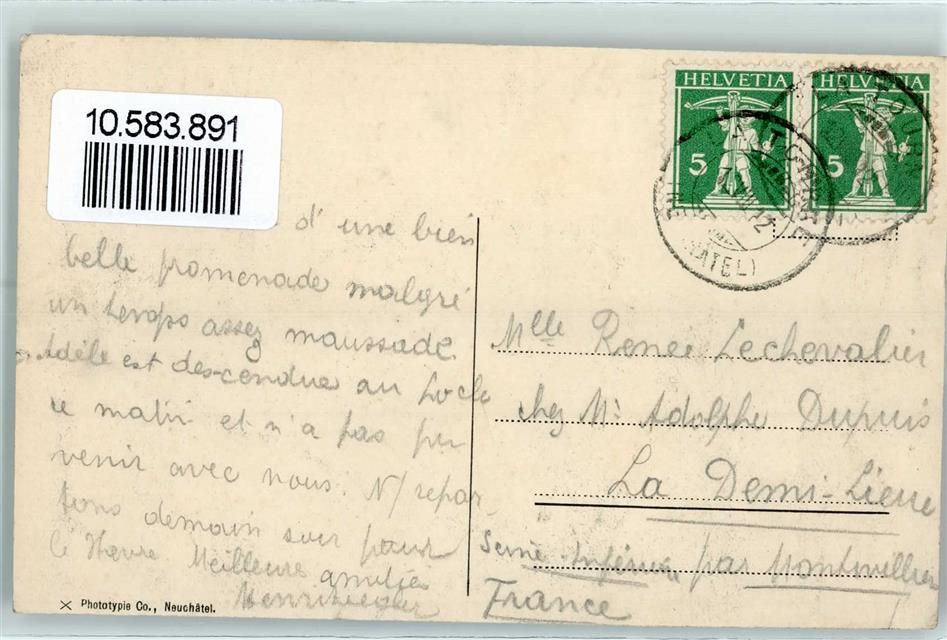 10.583.891
HELVETIA HELVETIA
5 5
d'une bien
belle promenade malgré
un temps assez maussade.
Adèle est descendue au Locle
ce matin et n'a pas pu
venir avec nous. N/ repar
tons demain soir pour
le Havre Meilleure
amitiés
Mlle Renée Lechevalier
chez Mr Adolphe Dupuis
La Demi-Lieue
Seine Inférieure par Montivilliers
France
Phototypie Co., Neuchâtel.